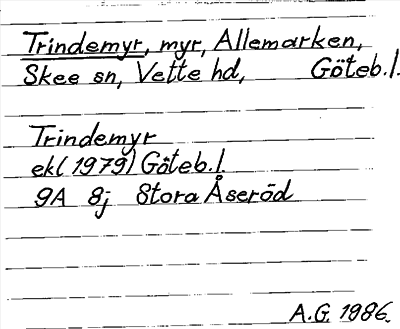 Trindemyr, myr, Allemarken,
Skee sn, Vette hd, Göteb.l.
Trindemyr
ek(1979) Göteb.l.
9A 8j Stora Åseröd
A.G. 1986.